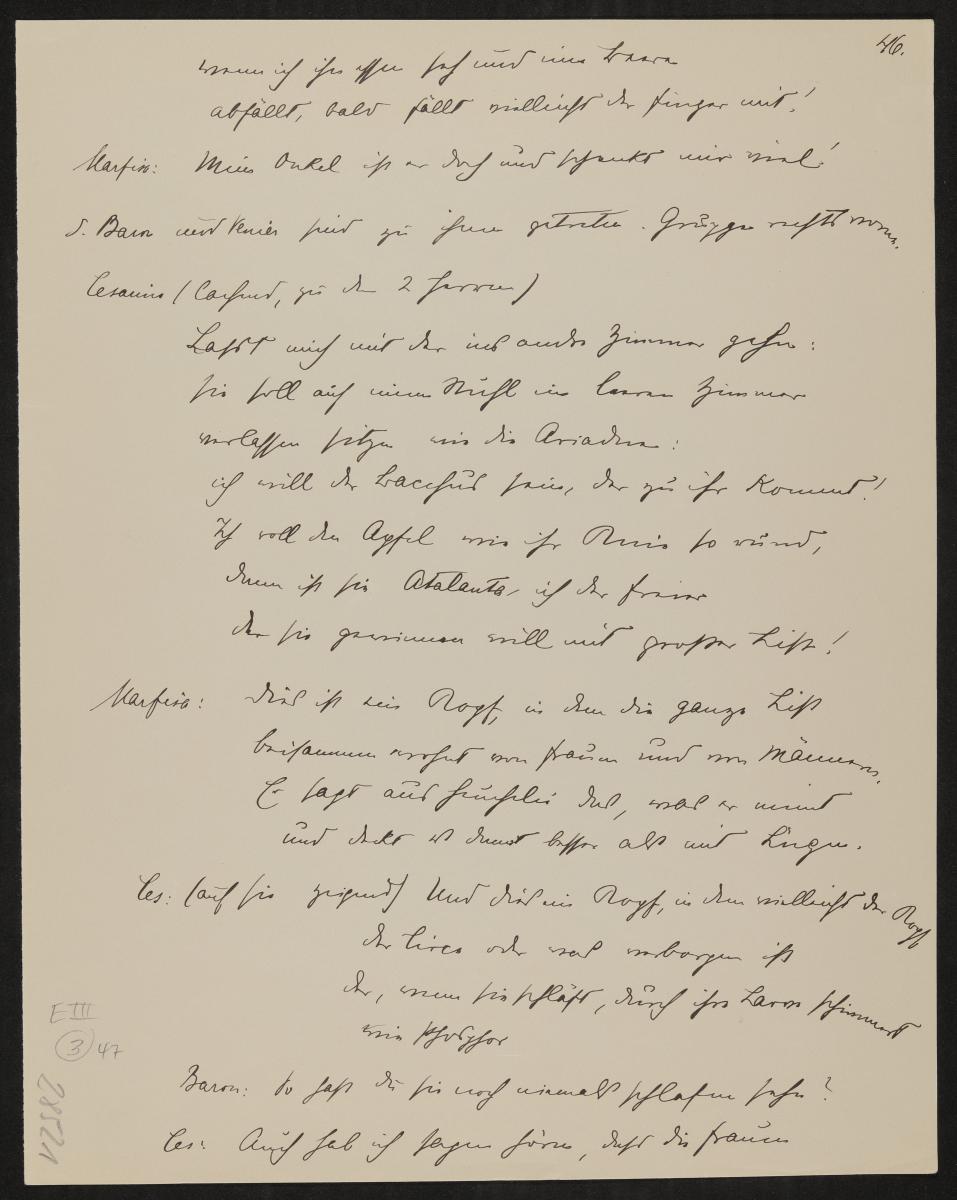 46.
wenn ich ihn essen seh und eine Beere
abfällt, bald fällt vielleicht der Finger mit!
Marfisa: Mein Onkel ist er doch und schenkt mir viel!
d. Baron und Venier sind zu ihnen getreten. Gruppe rechts vorne.
Cesarino (lachend, zu den 2 Herren)
Lasst mich mit der ins andre Zimmer gehn:
sie soll auf einem Stuhl im leeren Zimmer
verlassen sitzen wie die Ariadne:
ich will der Bacchus sein, der zu ihr kommt!
Ich roll den Apfel wie ihr Knie so rund,
dann ist sie Atalanta, ich der Freier
der sie gewinnen will mit grosser List!
Marfisa: Dies ist ein Kopf, in dem die ganze List
beisammen wohnt von Frauen und von Männern.
Er sagt aus Heuchelei das, was er meint
und deckt es damit besser als mit Lügen.
Ces: (auf sie zeigend) Und dies ein Kopf, in dem vielleicht der Kopf
der Circe oder was verborgen ist
der, wenn sie schläft, durch ihre Larve schimmert
wie Phosphor
Baron: So hast du sie noch niemals schlafen sehn?
Ces: Auch hab ich sagen hören, dass die Frauen
E III
3 47